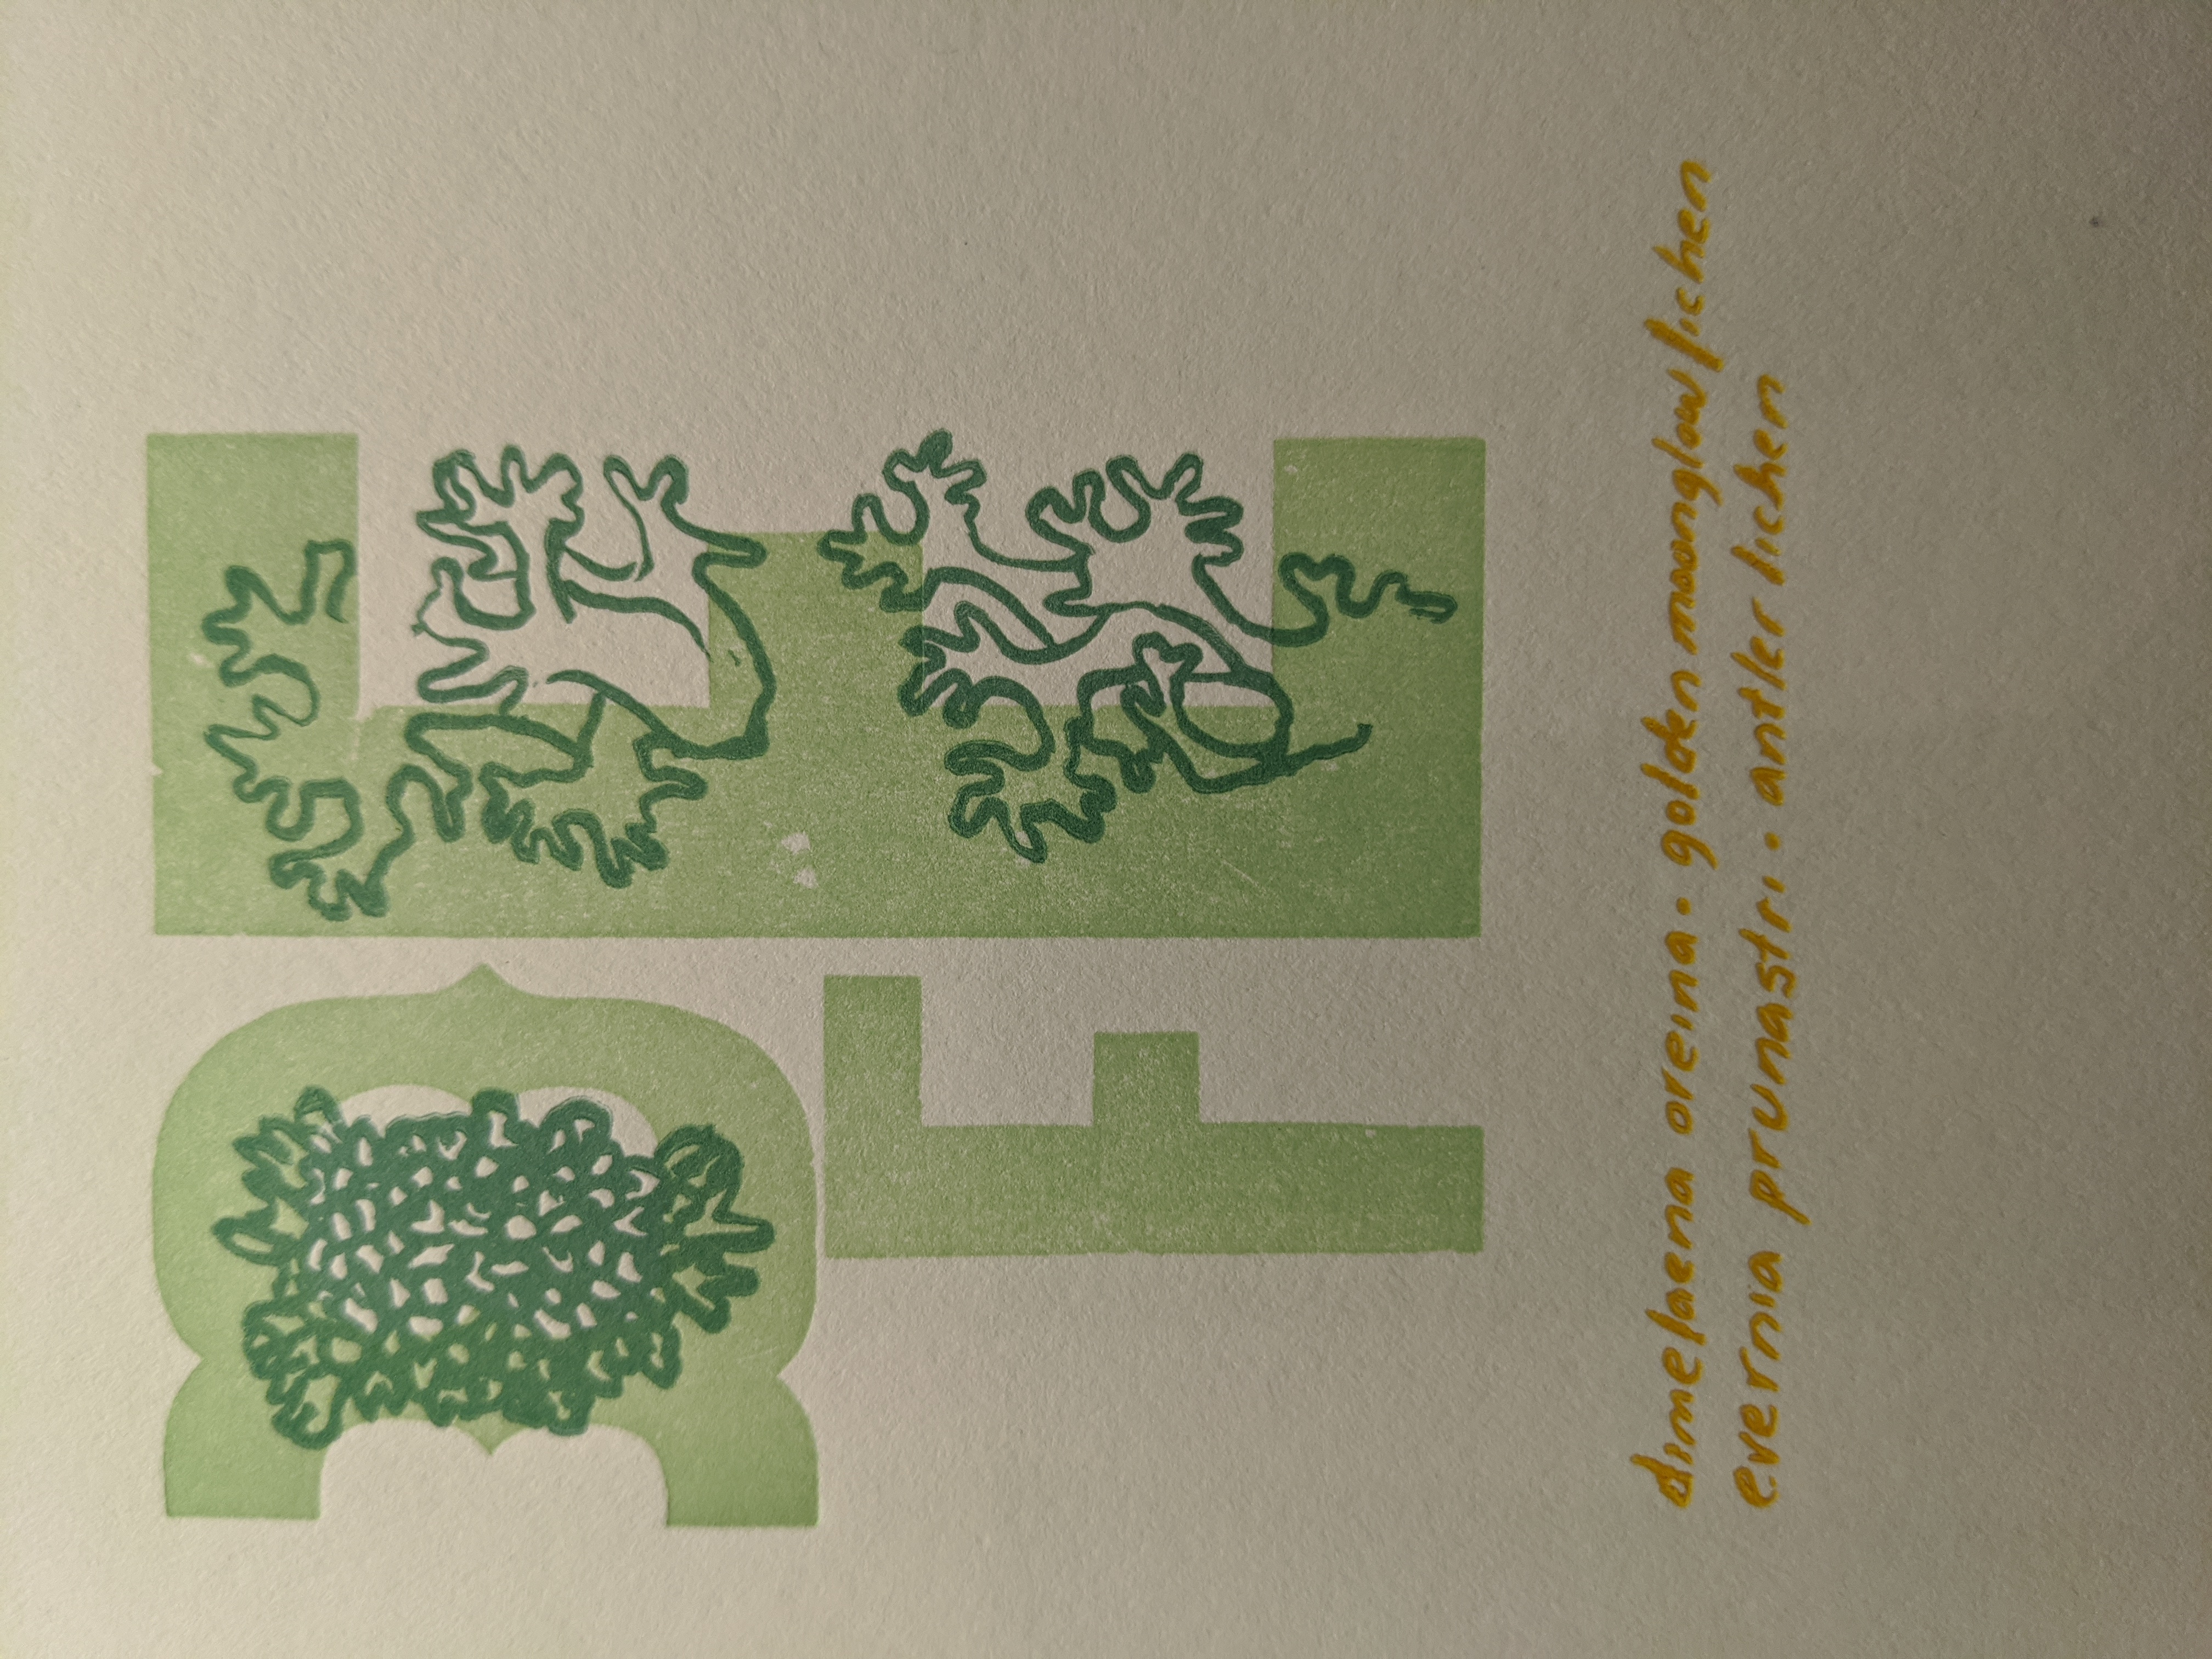 D E
F
dimelaena oreina · golden moonglow lichen
evernia prunastri · antler lichen